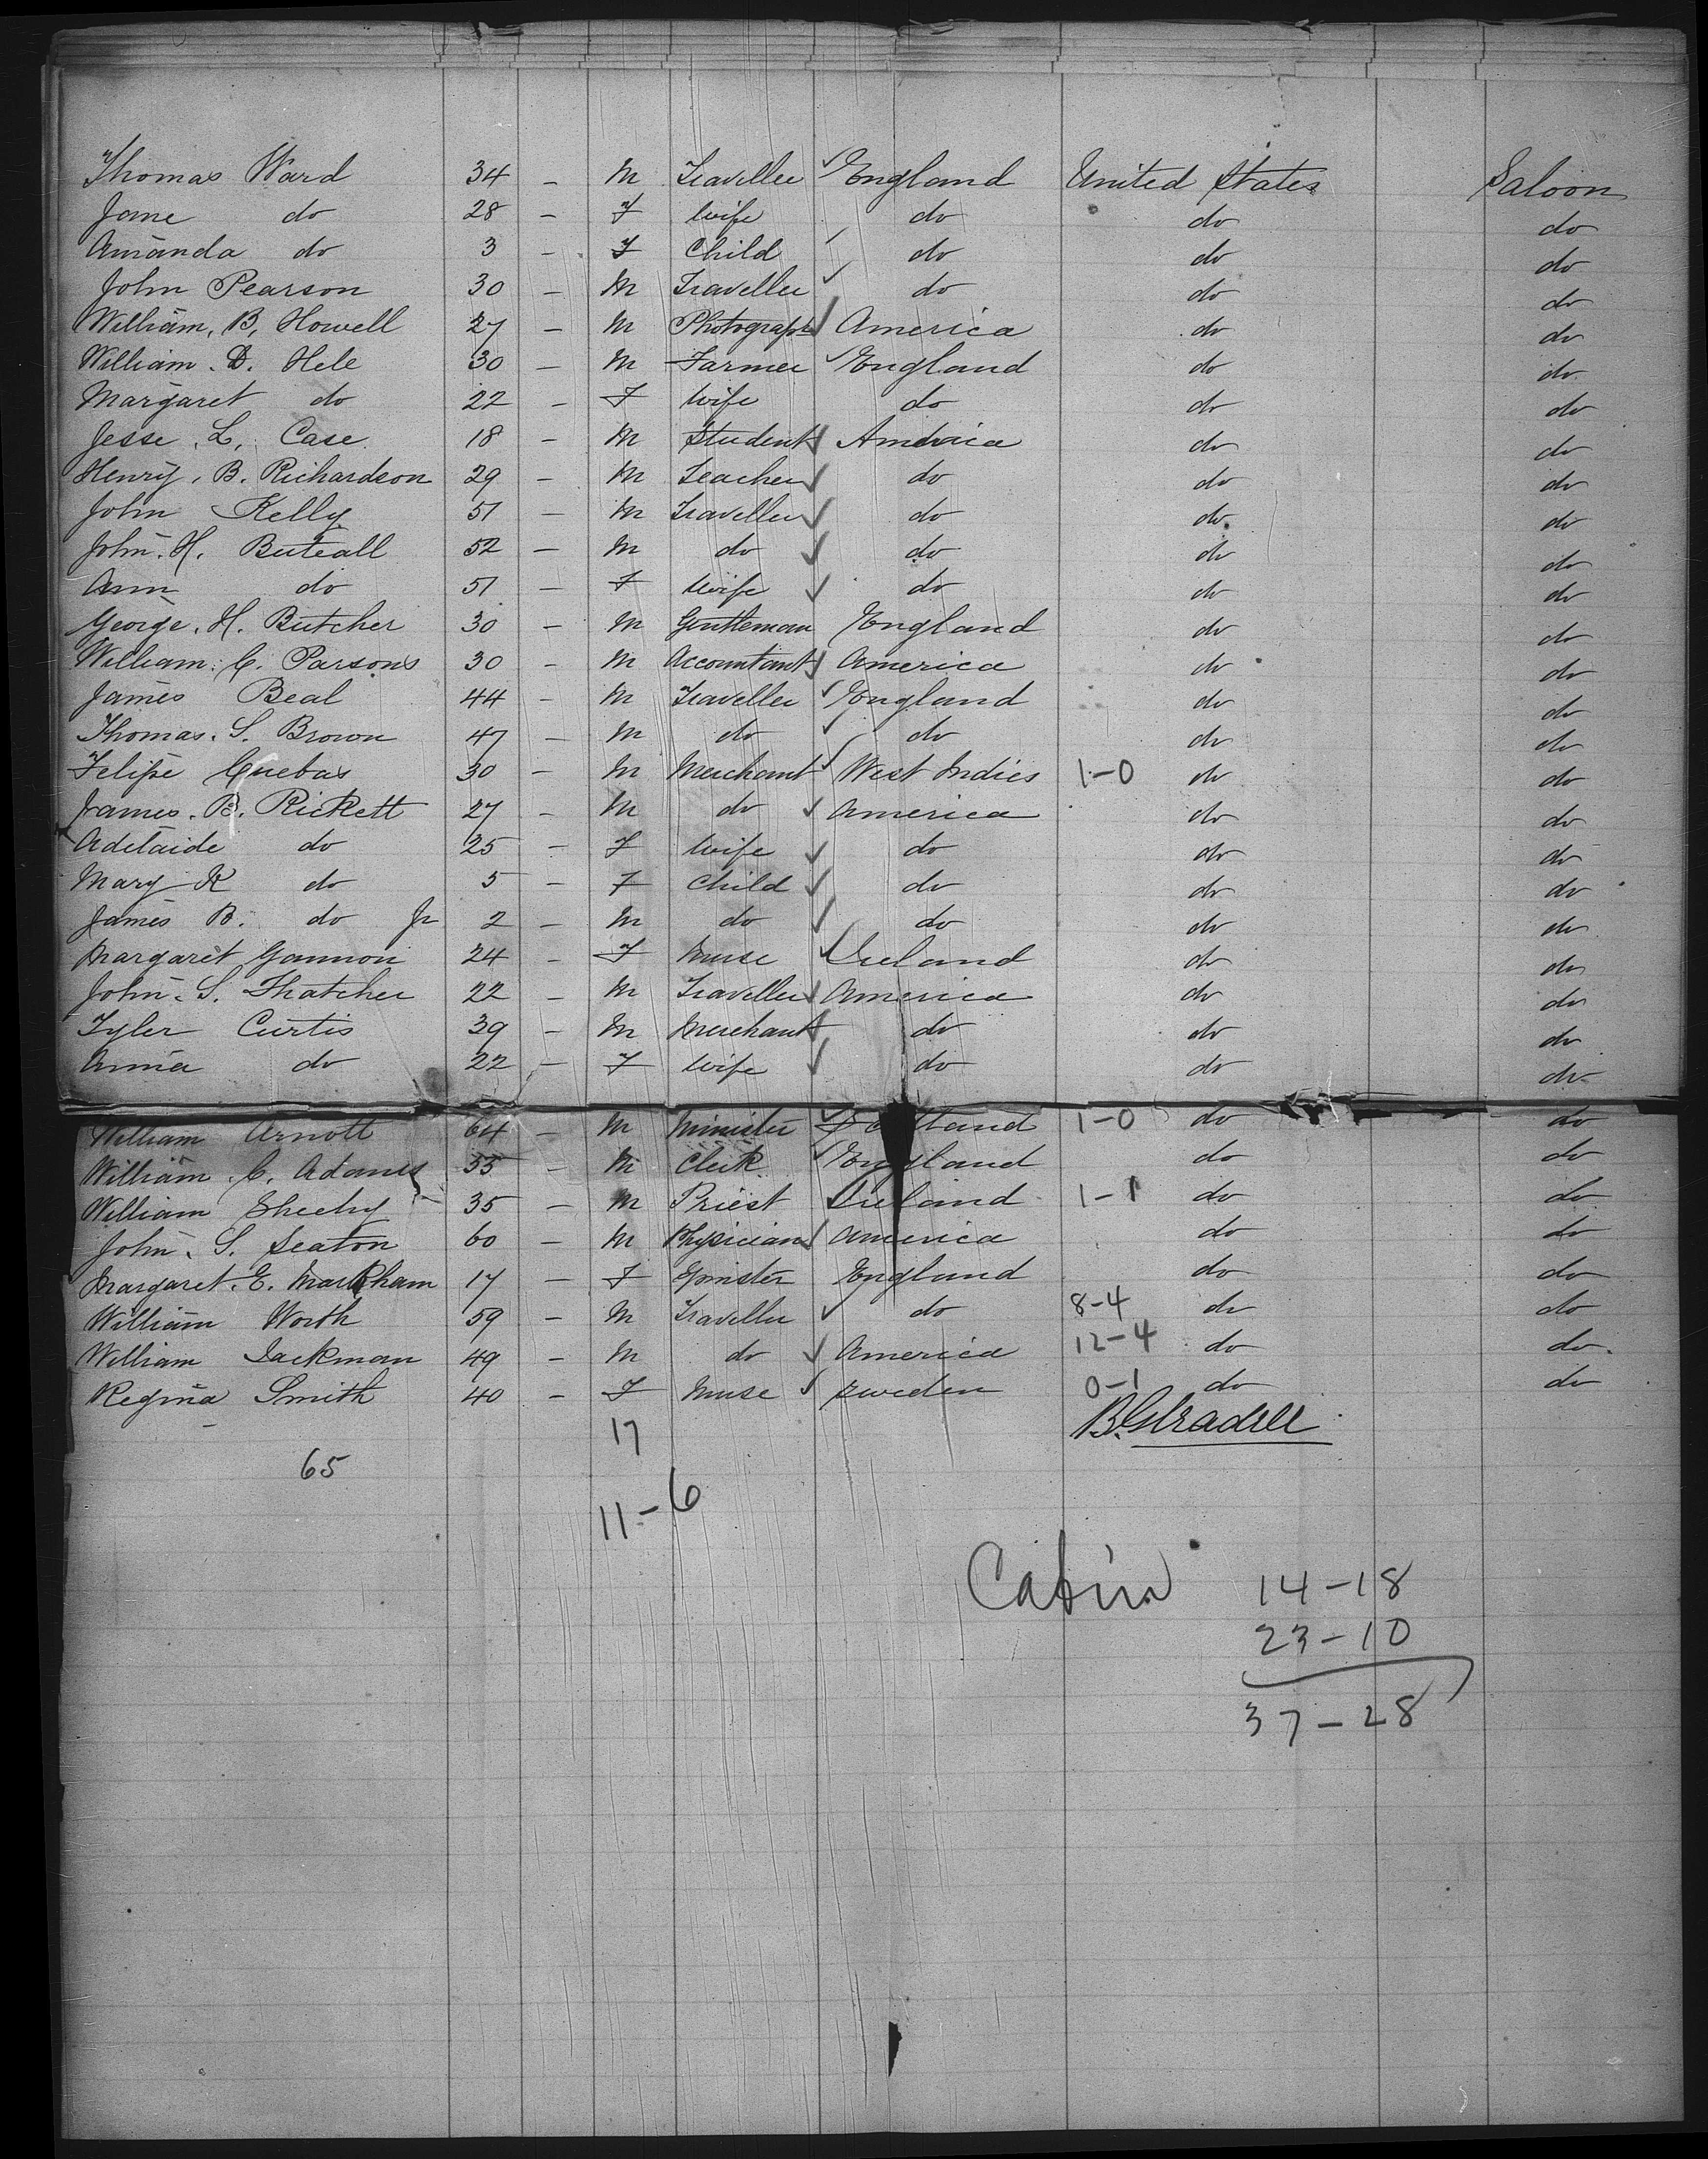 Thomas Ward 34 - M Traveller ✓ England United States Saloon
Jane do 28 - F Wife do do do
Amanda do 3 - F Child ✓ do do do
John Pearson 30 - M Traveller ✓ do do do
William, B, Howell 27 - M Photograph ✓ America do do
William. D. Hele 30 - M Farmer ✓ England do do
Margaret do 22 - F Wife do do do
Jesse. L. Case 18 - M Student ✓ America do do
Henry. B. Richardson 29 - M Teacher ✓ do do do
John Kelly 51 - M Traveller ✓ do do do
John. H. 52 - M do ✓ do do do
Ann do 51 - F Wife ✓ do do do
George. H. Butcher 30 - M Gentleman England do do
William. C. Parsons 30 - M Accountant ✓ America do do
James Beal 44 - M Traveller ✓ England do do
Thomas. S. Brown 47 - M do ✓ do do do
Felipe Cuebas 30 - M Merchant ✓ West Indies 1-0 do do
James. B. Rickett 27 - M do ✓ America do do
Adelaide do 25 - F Wife ✓ do do do
Mary K do 5 - F Child ✓ do do do
James B. do Jr 2 - M do ✓ do do do
Margaret Gannon 24 - F Nurse ✓ Ireland do do
John. S. Thatcher 22 - M Traveller ✓ America do do
Tyler Curtis 39 - M Merchant ✓ do do do
Anna do 22 - F Wife ✓ do do do
William Arnott 64 - M Minister ✓ Scotland 1-0 do do
William. C. Adams 55 - M Clerk ✓ England do do
William Sheehy 35 - M Priest Ireland 1-1 do do
John. S. Seaton 60 - M Physician ✓ America do do
Margaret. E. Markham 17 - F Spinster England do do
William Worth 59 - M Traveller ✓ do 8-4 do do
William Jackman 49 - M do ✓ America 12-4 do do
Regina Smith 40 - F Nurse ✓ Sweden 0-1 do do
17
65
11-6
Cabin 14-18
23-10
37-28